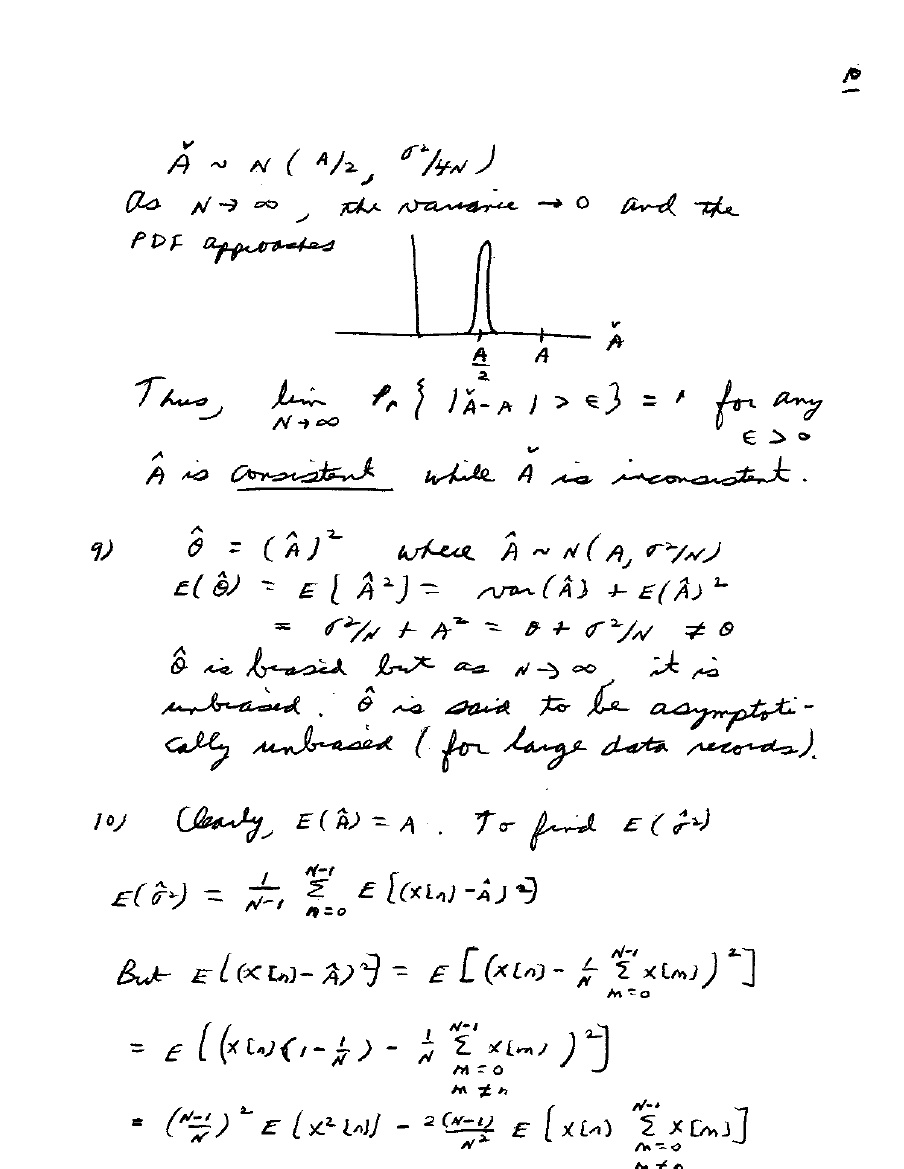 10
Ǎ ~ N ( A/2, σ²/4N )
As N → ∞, the variance → 0 and the
PDF approaches
A/2 A Ǎ
Thus, lim_{N→∞} Pr { |Ǎ-A| > ε } = 1 for any
ε > 0
Â is consistent while Ǎ is inconsistent.
9) θ̂ = (Â)² where Â ~ N(A, σ²/N)
E(θ̂) = E[Â²] = var(Â) + E(Â)²
= σ²/N + A² = θ + σ²/N ≠ θ
θ̂ is biased but as N → ∞, it is
unbiased. θ̂ is said to be asymptoti-
cally unbiased (for large data records).
10) Clearly, E(Â) = A. To find E(σ̂²)
E(σ̂²) = 1/(N-1) Σ_{n=0}^{N-1} E[(x[n] - Â)²]
But E[(x[n] - Â)²] = E[(x[n] - 1/N Σ_{m=0}^{N-1} x[m])²]
= E[(x[n](1 - 1/N) - 1/N Σ_{m=0, m≠n}^{N-1} x[m])²]
= ((N-1)/N)² E[x²[n]] - 2(N-1)/N² E[x[n] Σ_{m=0, m≠n}^{N-1} x[m]]